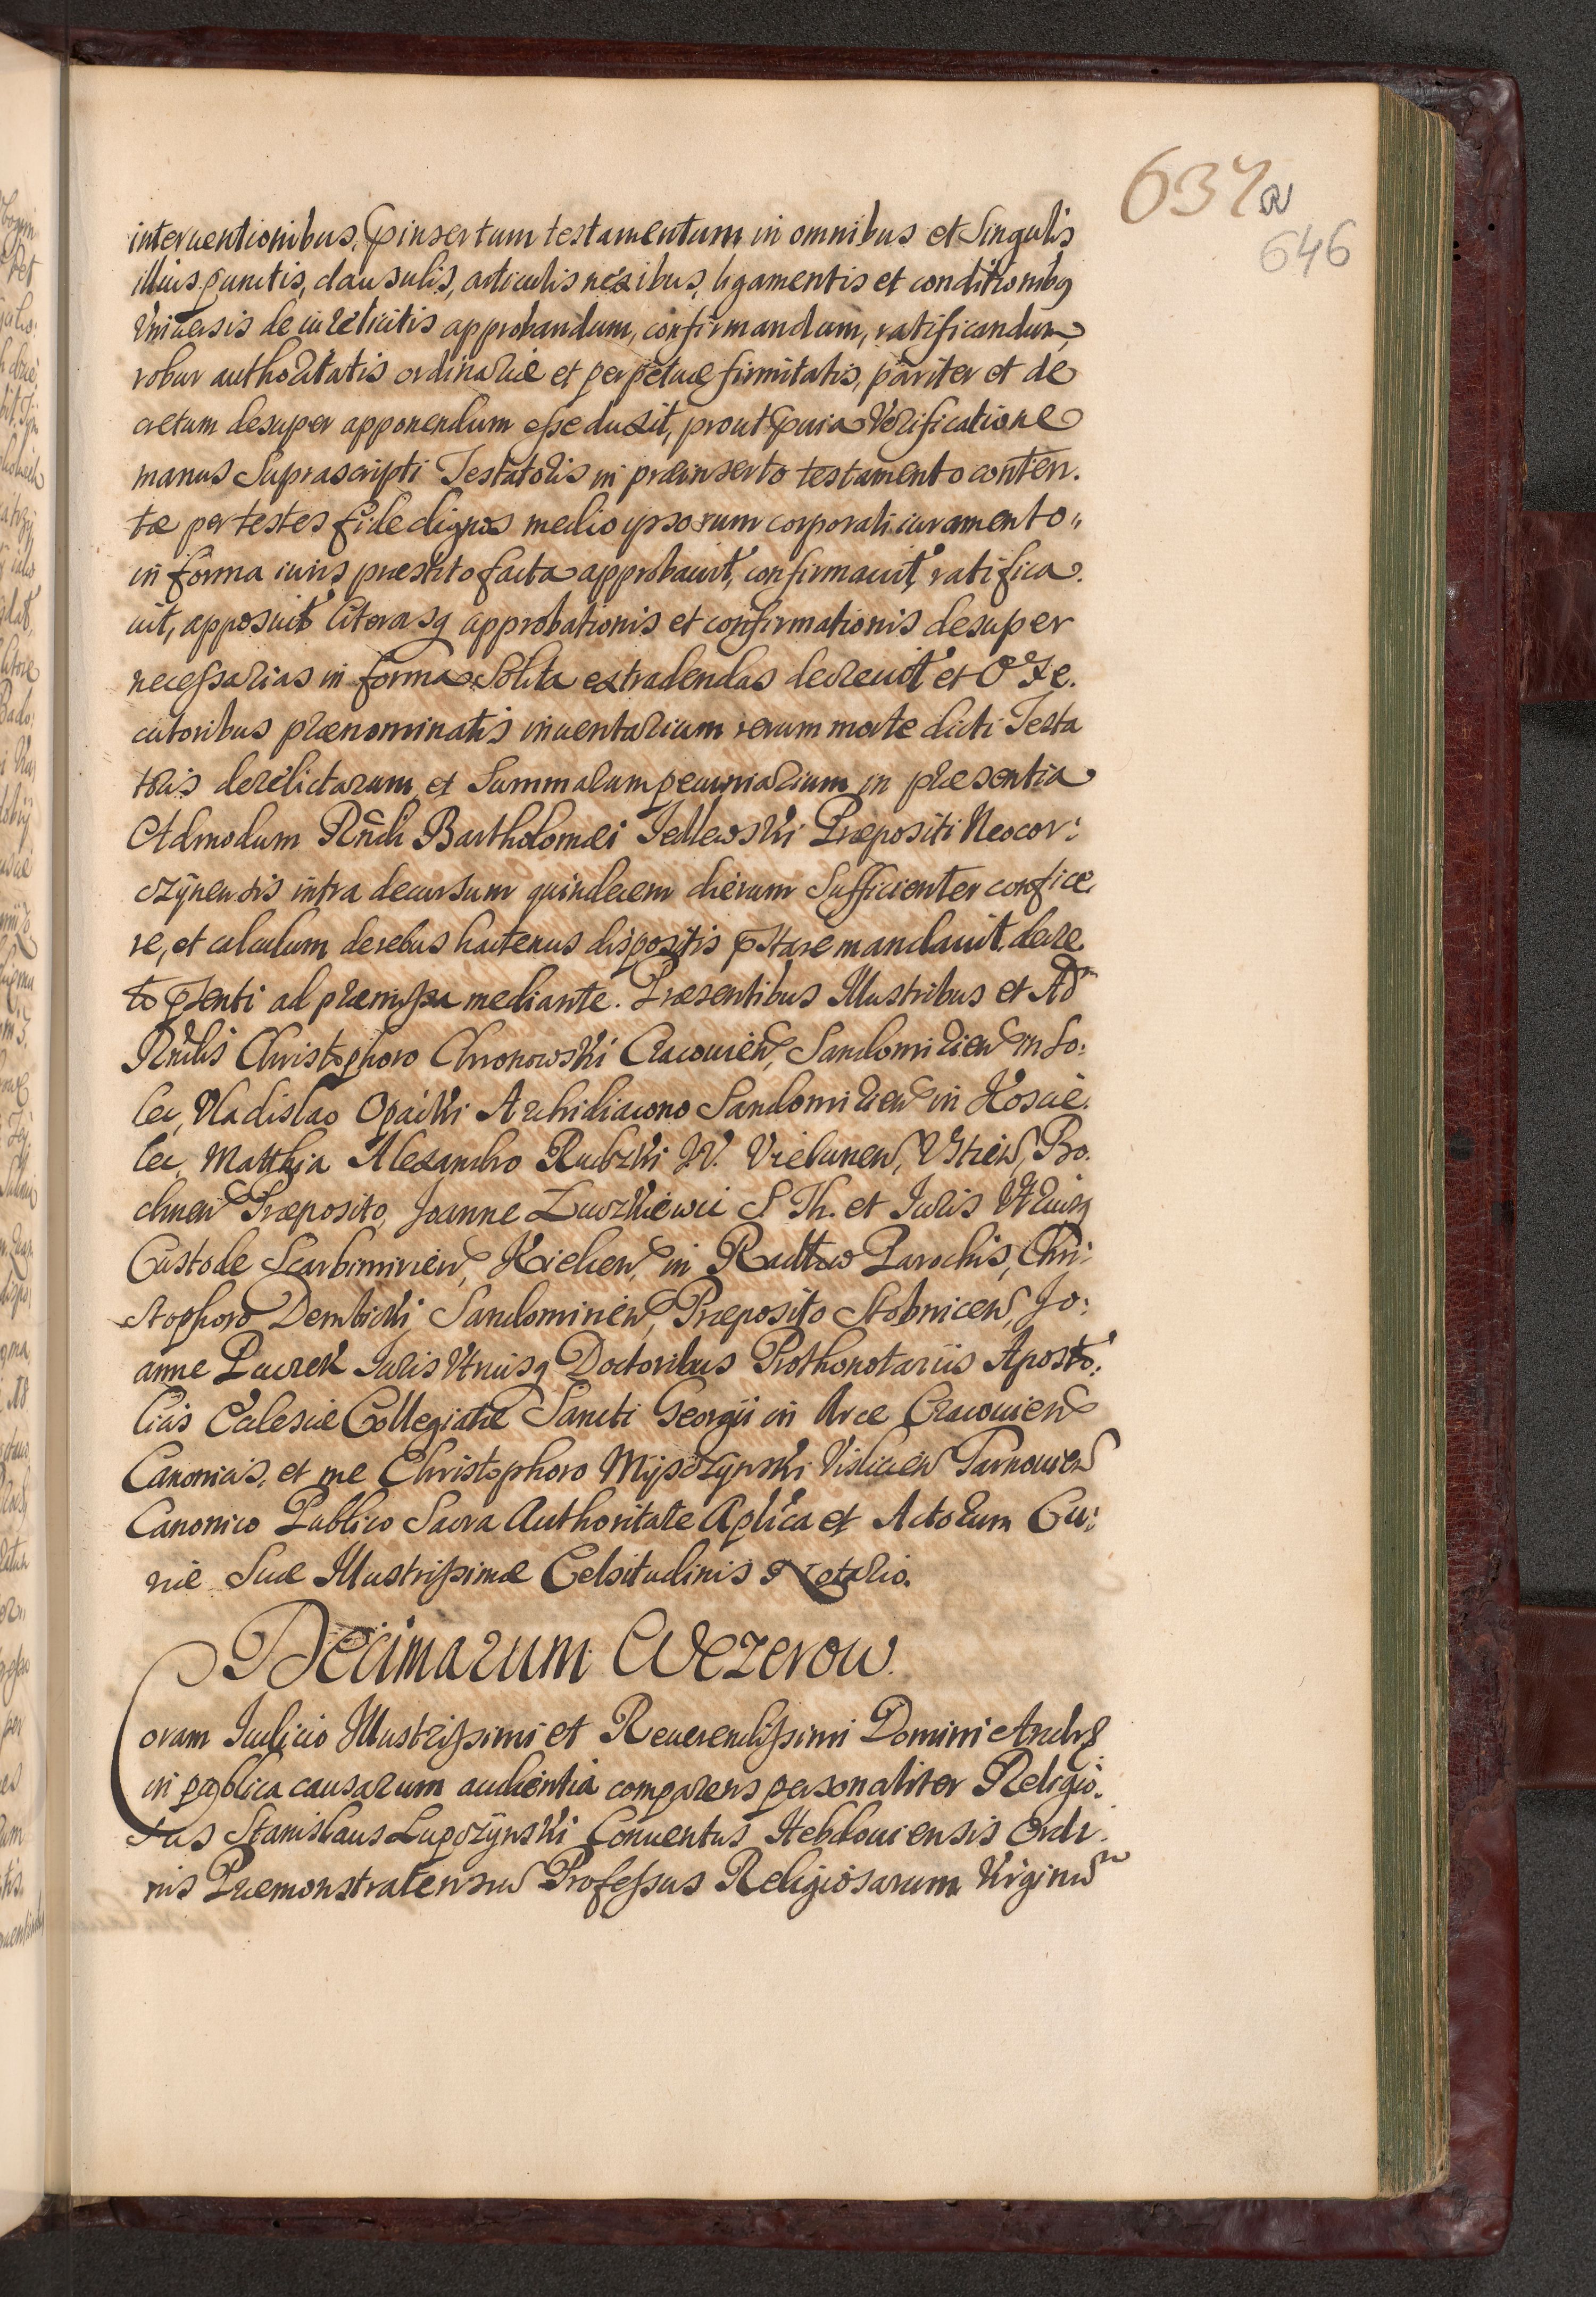 637a
646
interuentionibus, p̱insertum testamentum in omnibus et Singulis
illius punctis, clausulis, articulis nexibus, ligamentis et conditionibq
Vniuersis de iure licitis approbandum, confirmandum, ratificandum,
robur authoritatis ordinariæ et perpetuæ firmitatis, pariter et de
cretum desuper apponendum esse duxit, prout p̱uia Verificatione
manus Suprascripti Testatoris in præinserto testamento conten.
tæ per testes fide dignos medio ipsorum corporali iuramento
in forma iuris præstito facta approbauit, confirmauit, ratifica.
uit, apposuit literasq approbationis et confirmationis desuper
necessarias in forma Solita extradendas decreuit et Exe.
cutoribus prænominatis inuentarium rerum morte dicti Testa
toris derelictarum, et Summarum pecuniarium in præsentia
Admodum Rñdi Bartholomæi Jedlewski Præpositi Neocor:
czÿnensis intra decursum quindecem dierum Sufficienter confice.
re, et calculum derebus hactenus dispositis p̱stare mandauit, decre.
to p̱senti ad præmissa mediante. Præsentibus Illustribus et Ad
Rñdis Christophoro Chronowski Cracouien, Sandomirien in So:
lec, Vladislao Opacki Archidiacono Sandomirien in Koscie.
lec, Matthia Alexandro Rudzki J.V. Vielunen, Vstien, Bo.
chnen Præposito, Joanne Luczkiewic S Th. et Juris Vtriusq
Custode Scarbimirien, Kielcen, in Radłow Parochis, Chri:
stophoro Dembicki Sandomirien, Præposito Stobnicen, Jo:
anne Pacrek Juris Vtriusq Doctoribus Prothonotariis Aposto:
licis Ecclesiæ Collegiatæ Sancti Georgii in Arce Cracouien
Canonicis, et me Christophoro Mijsczynski Vislicien Tarnouien
Canonico Publico Sacra Authoritate Aplica et Actorum Cu:
riæ Suæ Illustrissimæ Celsitudinis Notario.
Decimarum Wezerow.
Coram Iudicio Illustrissimi et Reuerendissimi Domini Andreæ
in publica causarum audientia comparens personaliter Religio.
sus Stanislaus Lupczynski Conuentus Hebdouiensis Ordi.
nis Præmonstratensium Professus Religiosarum Virginu